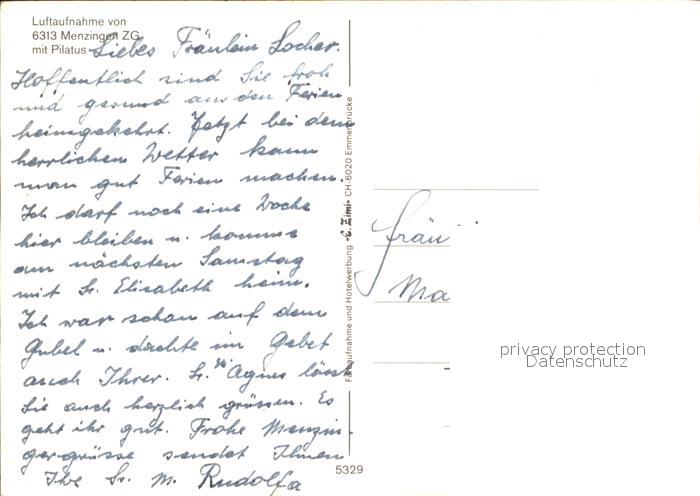 Luftaufnahme von
6313 Menzingen ZG
mit Pilatus
Liebes Fräulein Locher.
Hoffentlich sind Sie froh
und gesund aus den Ferien
heimgekehrt. Jetzt bei dem
herrlichen Wetter kann
man gut Ferien machen.
Ich darf noch eine Woche
hier bleiben u. komme
am nächsten Samstag
mit Sr. Elisabeth heim.
Ich war schon auf dem
Gubel u. dachte im Gebet
auch Ihrer. Sr. Agnes lässt
Sie auch herzlich grüssen. Es
geht ihr gut. Frohe Menzin-
gergrüsse sendet Ihnen
Ihre Sr. M. Rudolfa
Farbaufnahme und Hotelwerbung E. Zimi CH-6020 Emmenbrücke
5329
Fräu
Ma
privacy protection
Datenschutz